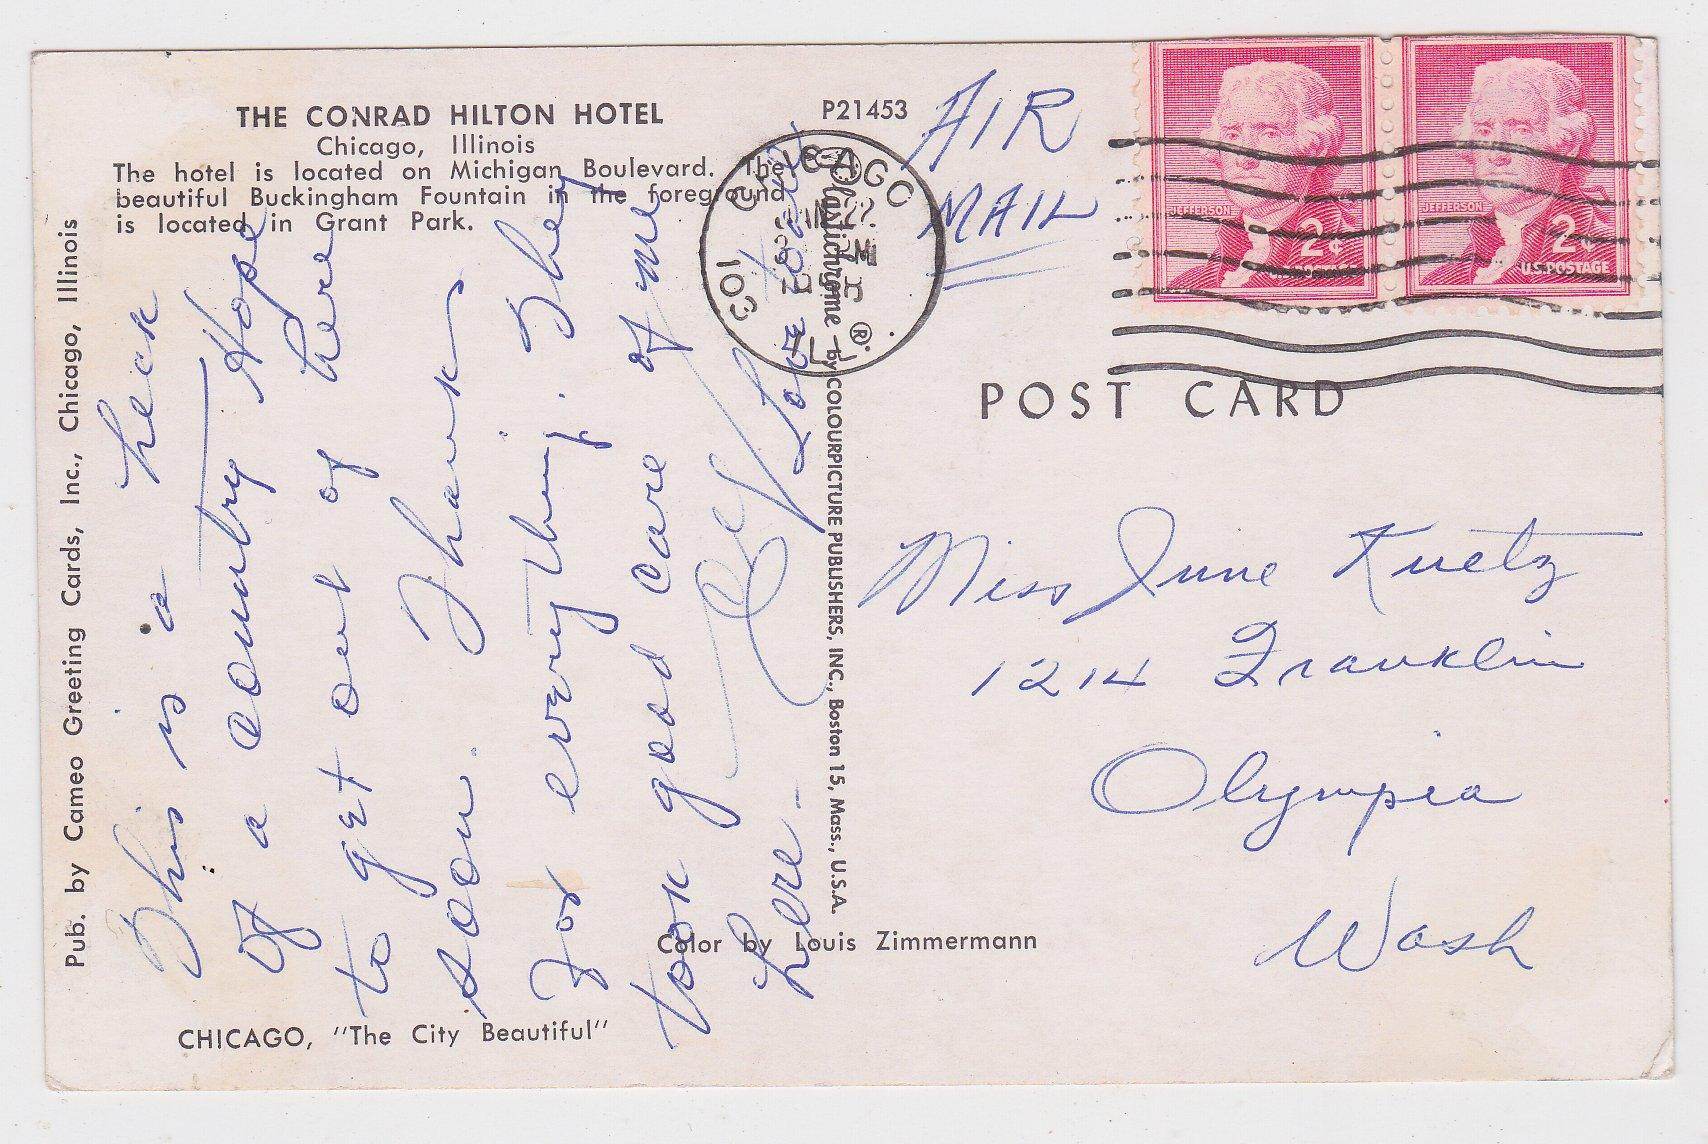 THE CONRAD HILTON HOTEL
Chicago, Illinois
The hotel is located on Michigan Boulevard. The
beautiful Buckingham Fountain in the foreground
is located in Grant Park.
P21453
AIR
MAIL
CHICAGO
103
ILL
JEFFERSON
2¢
JEFFERSON
2¢
U.S. POSTAGE
POST CARD
Pub. by Cameo Greeting Cards, Inc., Chicago, Illinois
This is a heck
of a country Hope
to get out of here
soon. Thanks
for everything. They
took good care of me
here -
Love to all
Plastichrome ® by COLOURPICTURE PUBLISHERS, INC., Boston 15, Mass., U.S.A.
Miss June Kuetz
1214 Franklin
Olympia
Wash
Color by Louis Zimmermann
CHICAGO, "The City Beautiful"